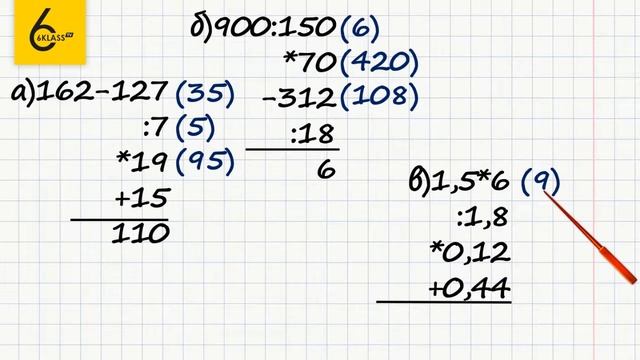 6KLASS TV
а)162-127 (35)
:7 (5)
*19 (95)
+15
110
б)900:150 (6)
*70 (420)
-312 (108)
:18
6
в)1,5*6 (9)
:1,8
*0,12
+0,44